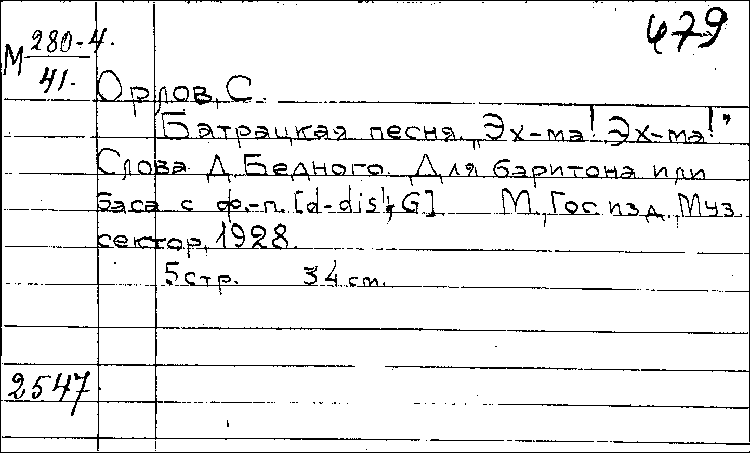 479
М 280-4.
41.
Орлов, С.
Батрацкая песня. „Эх-ма! Эх-ма!"
Слова Д. Бедного. Для баритона или
баса с ф.-п. [d-dis¹; G] М., Гос. изд. Муз.
сектор, 1928.
5 стр. 34 см.
2547